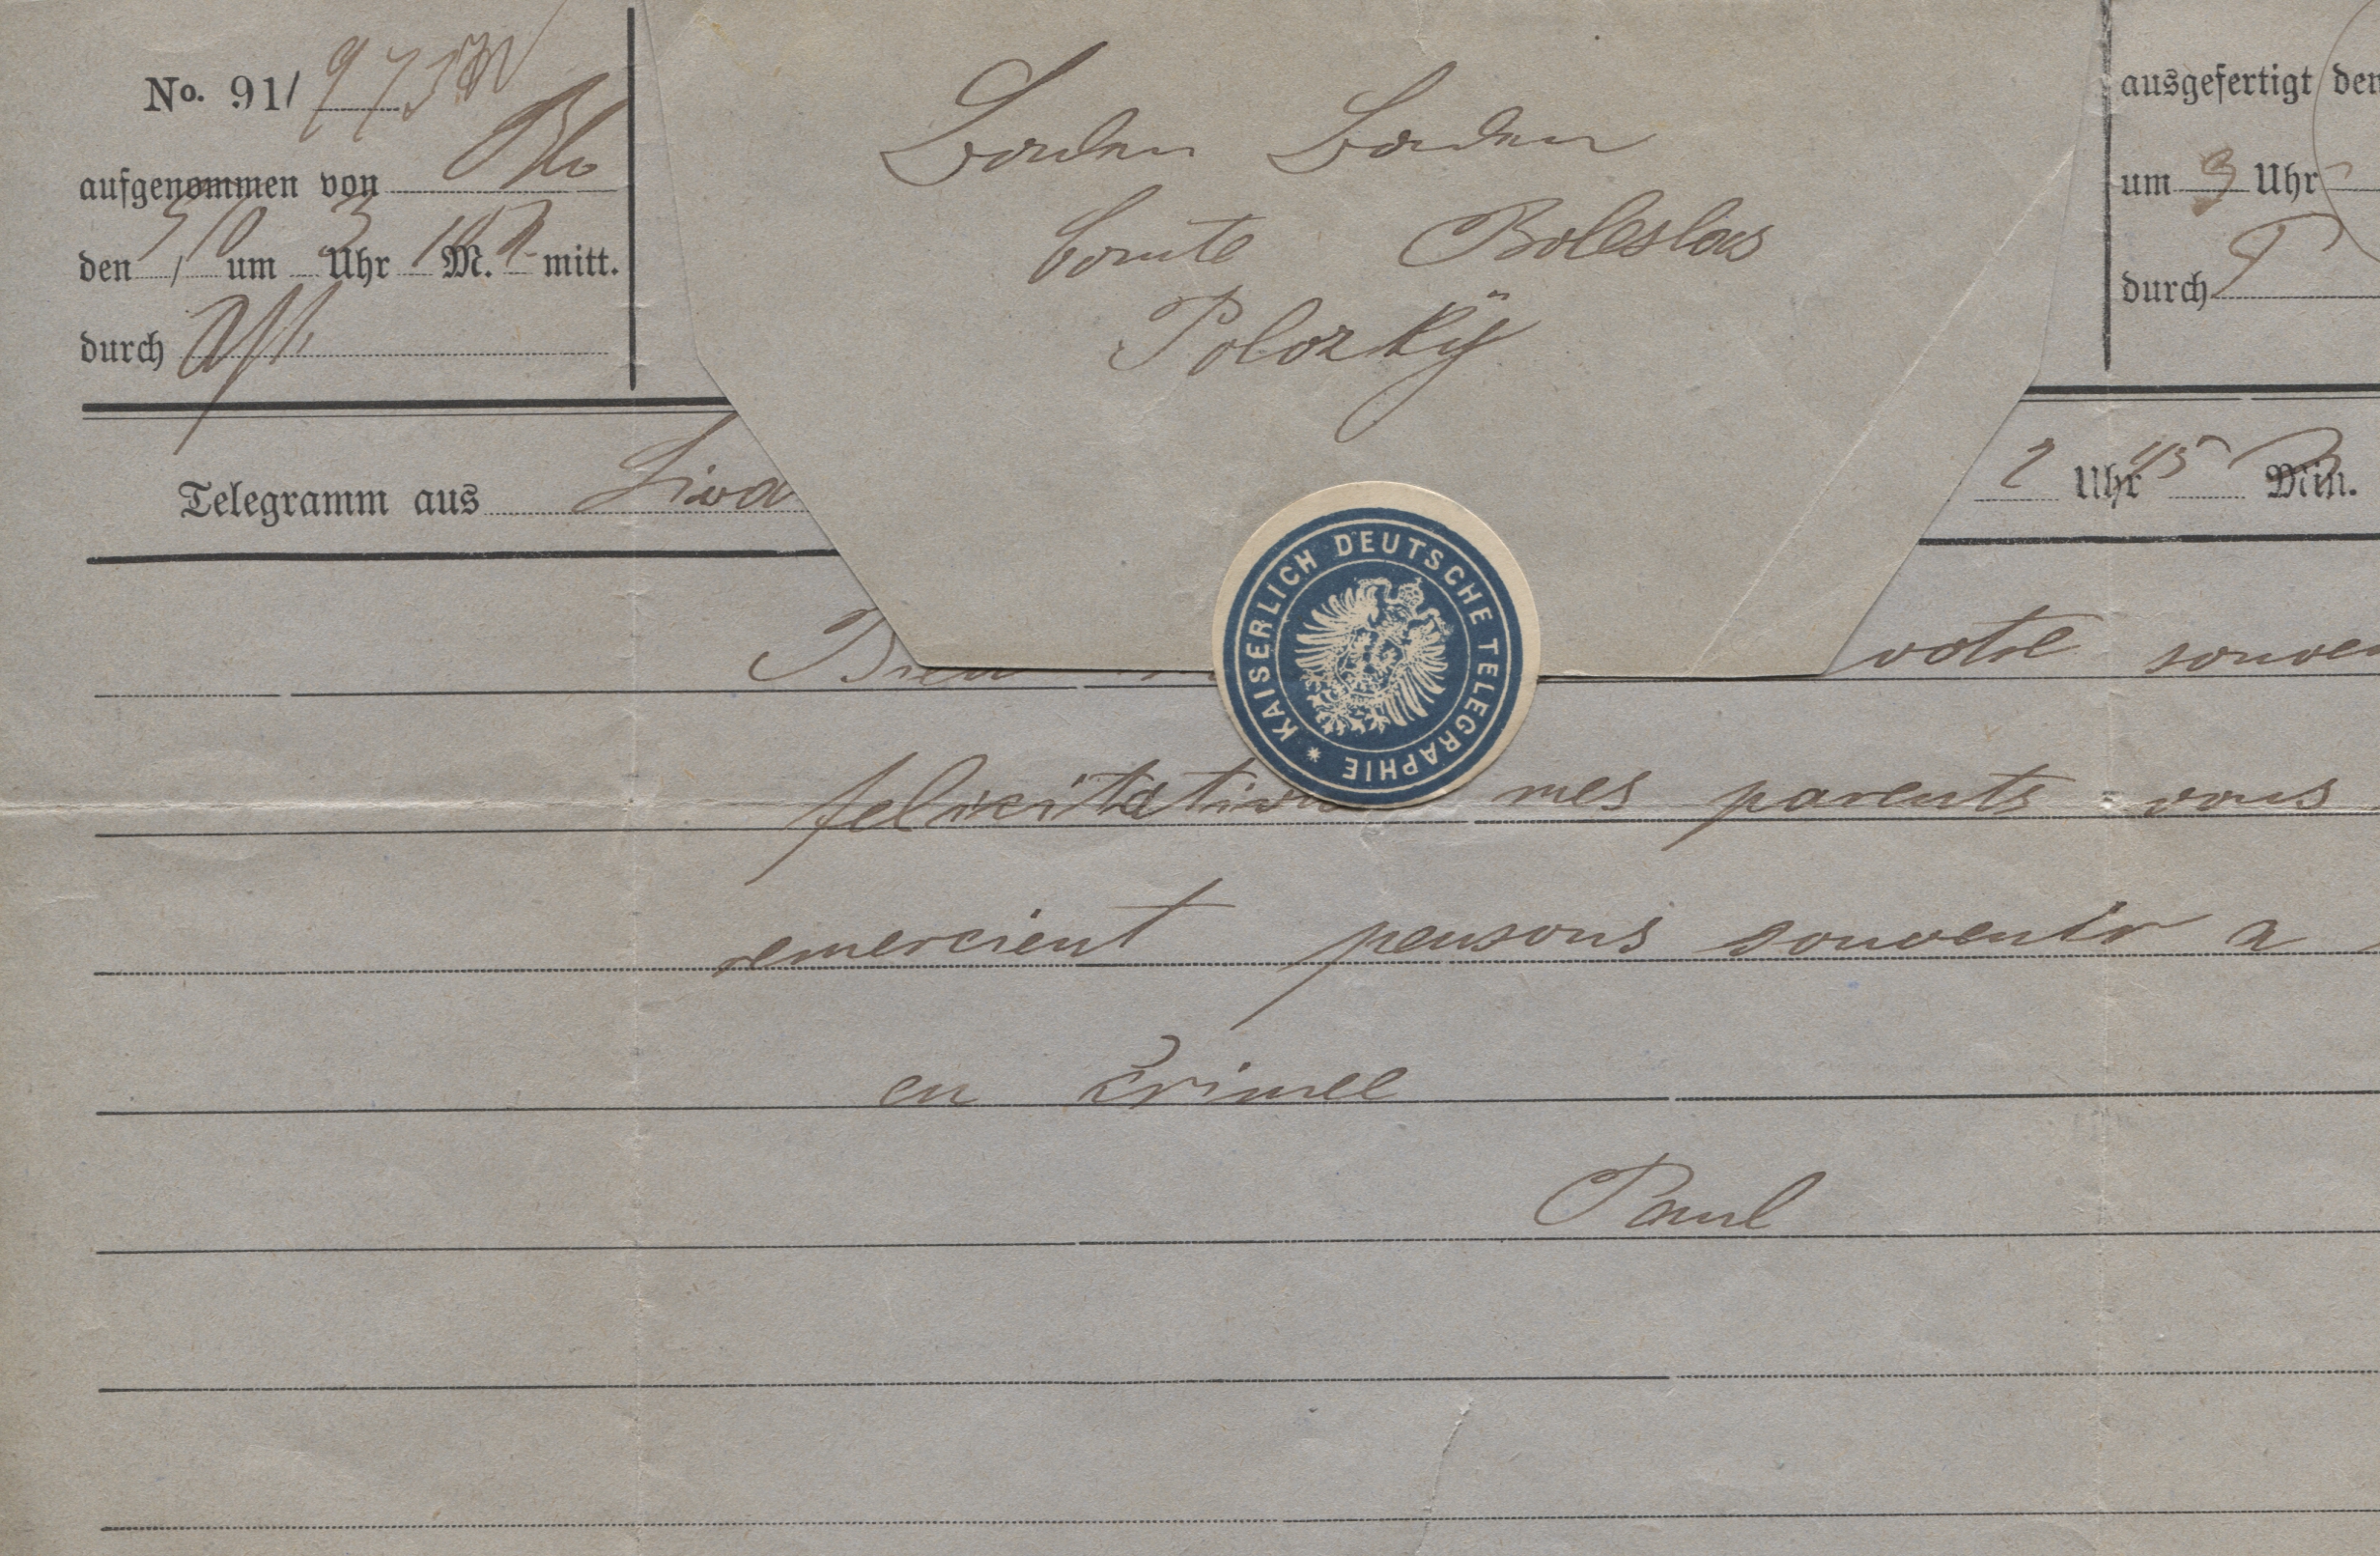 No. 91/
aufgenommen von
den um 3 Uhr M. mitt.
durch
Baden Baden
Comte Boleslas
Polozky
ausgefertigt den
um 9 Uhr
durch
Telegramm aus Liva
2 Uhr 45 Min.
KAISERLICH DEUTSCHE TELEGRAPHIE *
Bien votre souve
felicitations mes parents vous
remercient pensons souvenir a
en Crimee
Paul